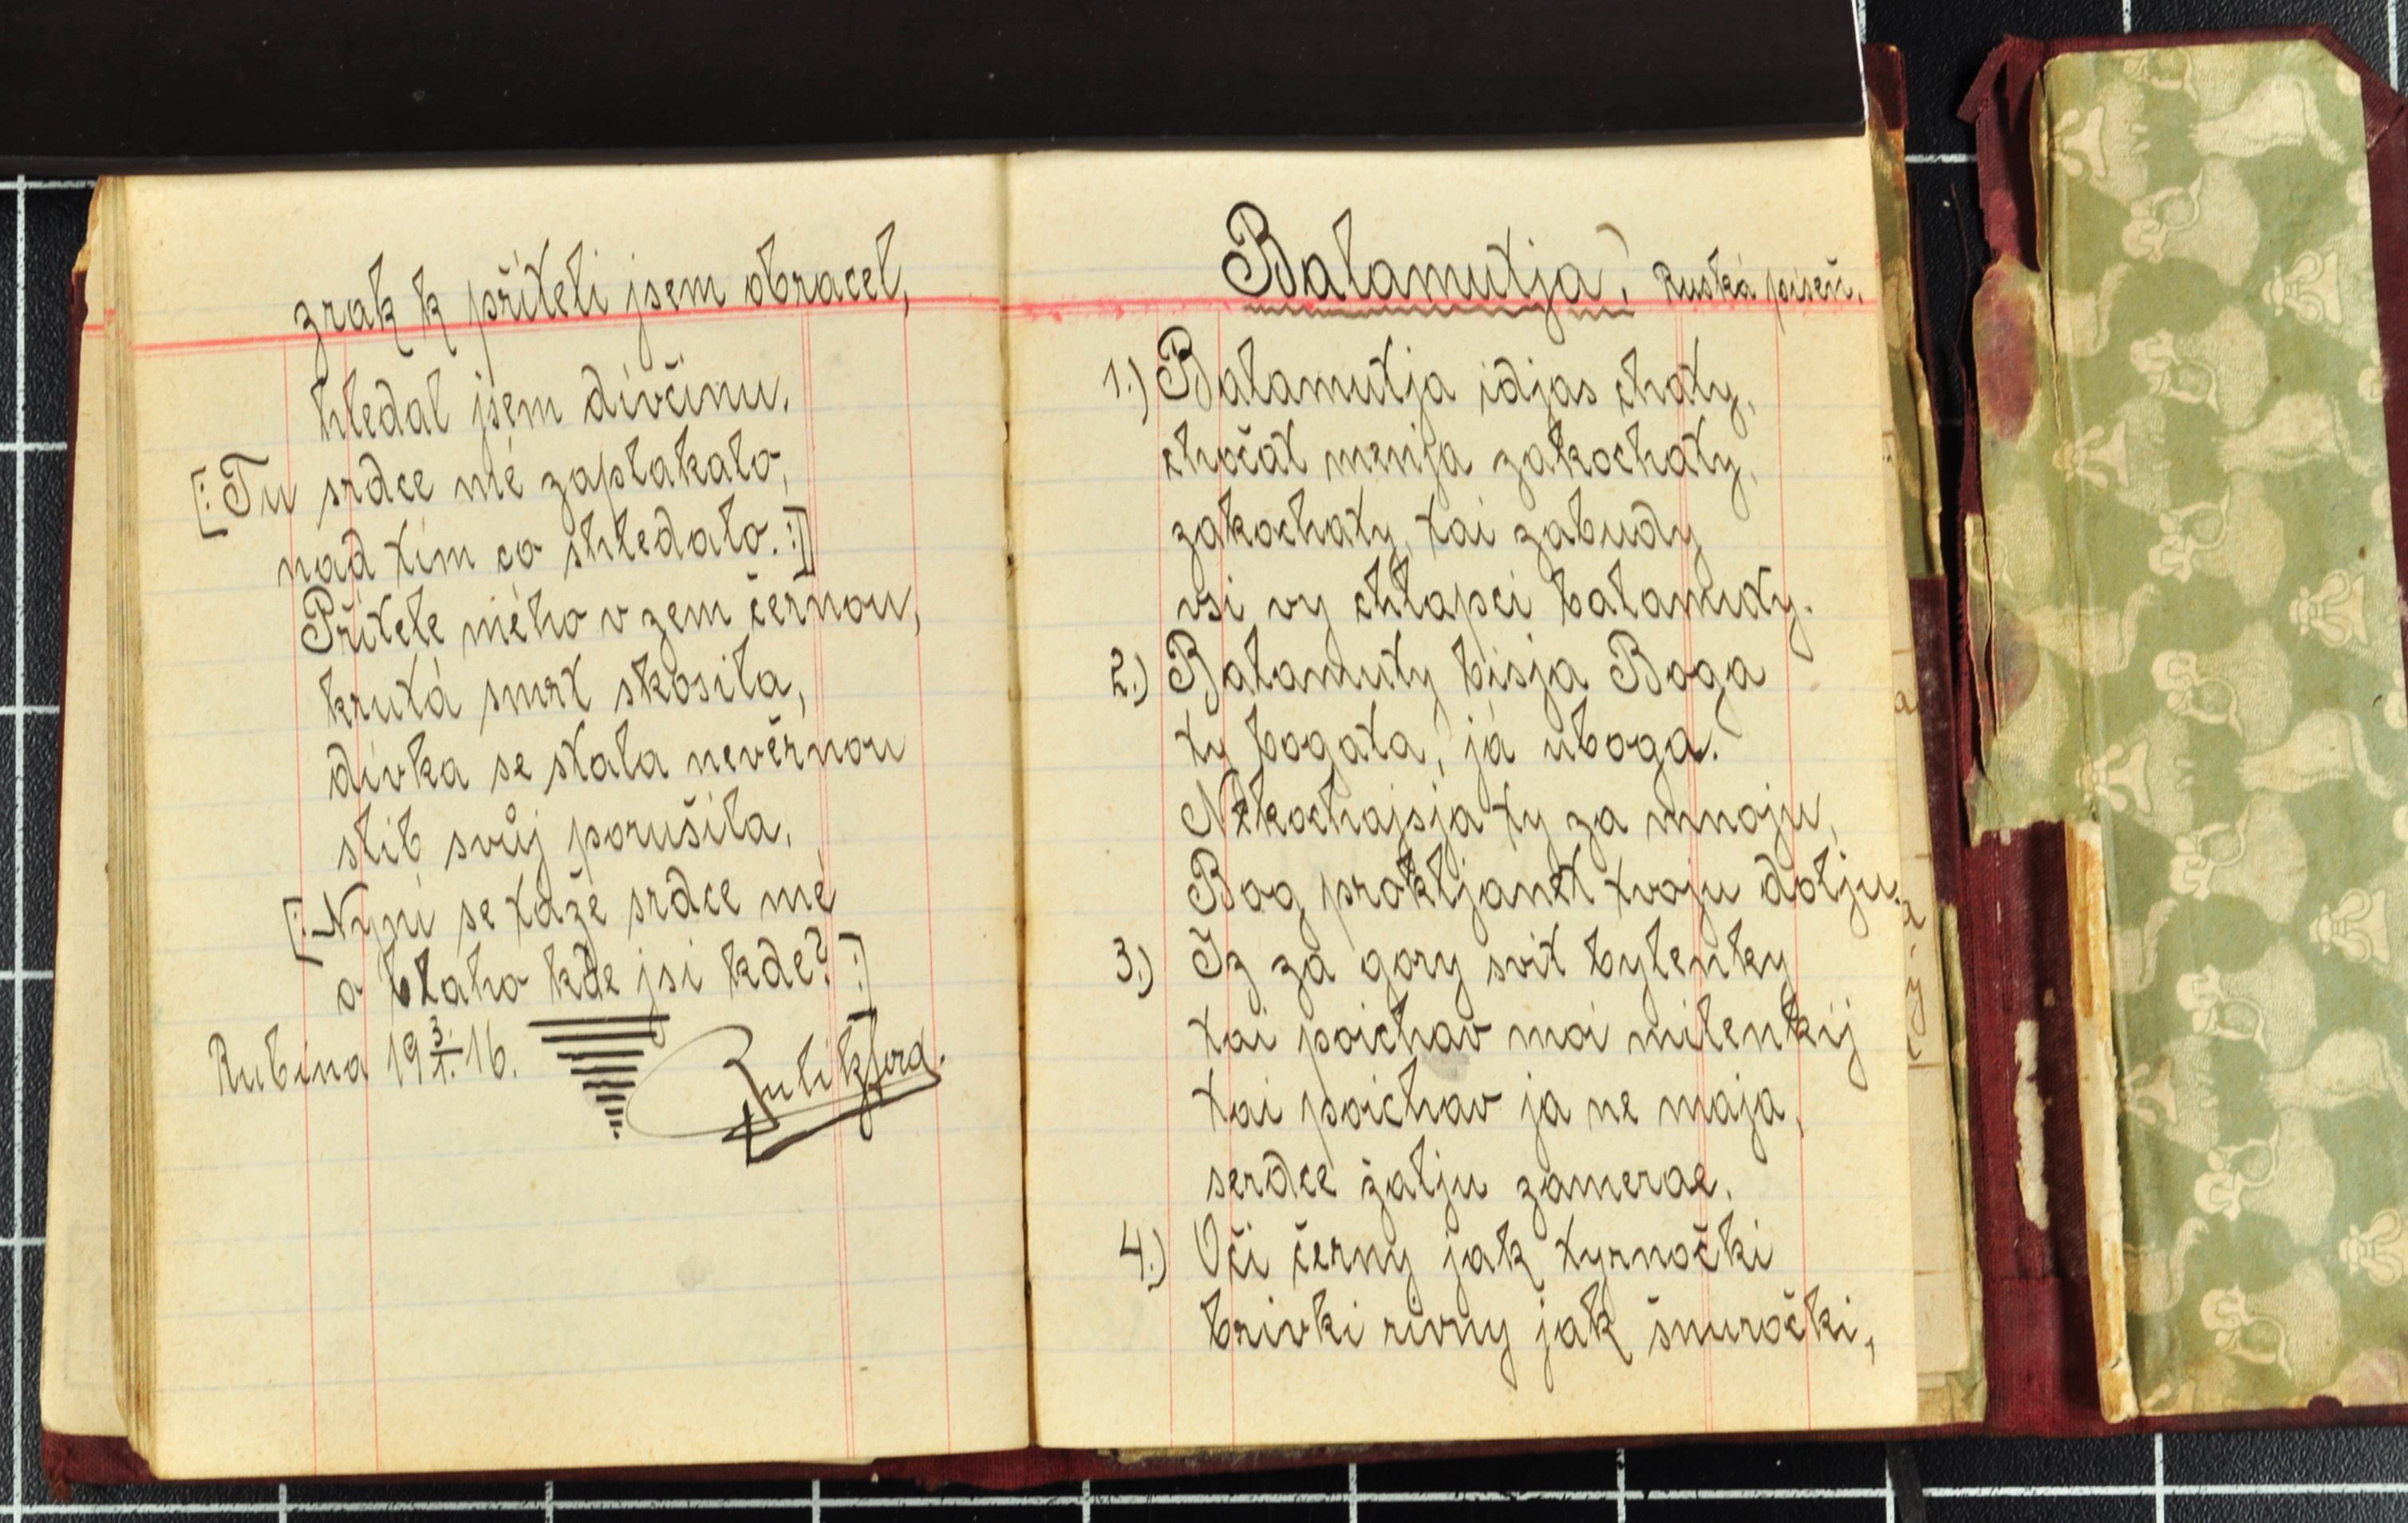 zrak k příteli jsem obracel,
hledal jsem divčinu.
[:Tu srdce mé zaplakalo,
nad tím co shledalo.:]
Přítele mého v zem černou,
krutá smrt skosila,
dívka se stala nevěrnou
slib svůj porušila.
[:Nyní se táže srdce mé
o blaho kde jsi kde?:]
Rubina 19 3./1. 16.
Balamutja, Ruská píseň.
1.) Balamutja idjas chaty,
chočat menja zakochaty,
zakochaty, tai zabudy
vsi vy chlapci balamuty.
2.) Balamuty bisja Boga
ty bogata, já uboga.
Nekochajsja ty za mnoju,
Bog prokljanet tvoju dolju.
3.) Iz za gory svit bylenky
tai poichav moi milenkij
tai poichav ja ne maja,
serdce žalju zamerae.
4.) Oči černy jak tyrnočki
brivki rivny jak šnuročki,